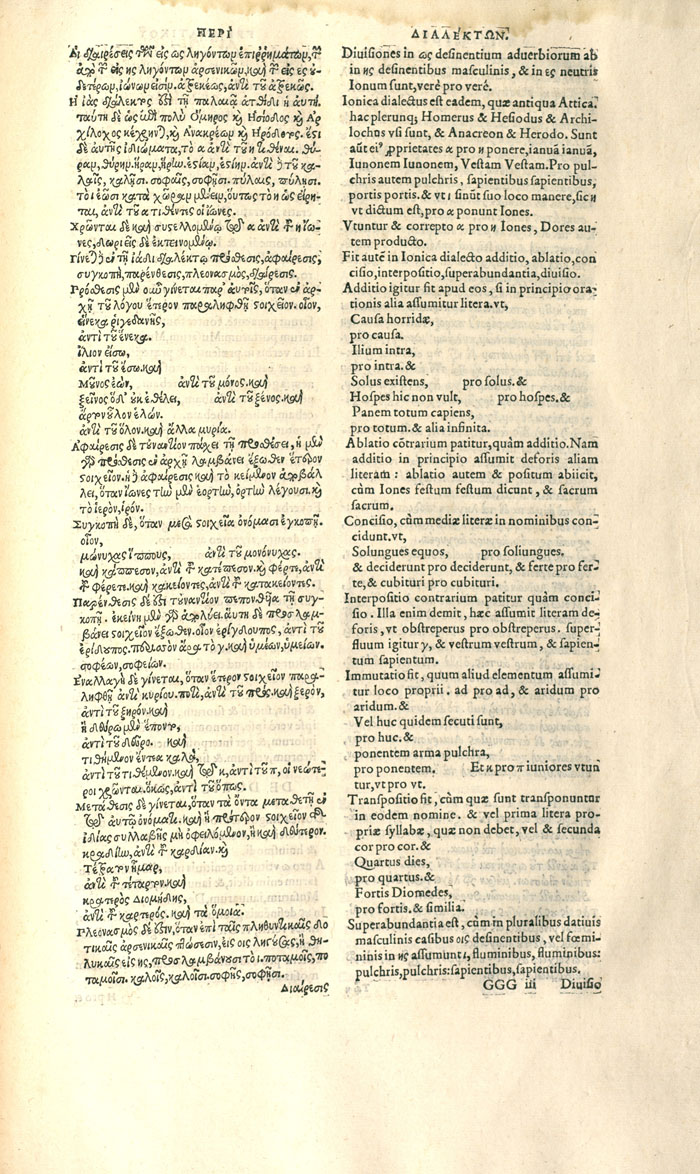 ΠΕΡΙ
Αἱ διαιρέσεις τῶν εἰς ως ληγόντων ἐπιρρημάτων, τῶν
τοῦ ἰδίου ἐκ τοῦ ἀντὶ τοῦ ἀξεκῶς.
Ἡ ἰὰς διάλεκτος ὅτι τῇ παλαιᾷ ἀτθίδι ἡ αὐτή.
ταύτῃ δὲ ὡς ἐπὶ πολὺ Ὅμηρος καὶ Ἡσίοδος καὶ Ἀρ
χίλοχος κέχρηνται, καὶ Ἀνακρέων καὶ Ἡρόδοτος. ἔστι
δὲ αὐτῆς ἰδιώματα, τὸ α ἀντὶ τοῦ η τιθέναι. θύ-
ραν, θύρην. ἥραν, ἥρην. ἑστίαν, ἑστίην. ἀντὶ δὲ τοῦ κα-
λαῖς, καλῇσι. σοφαῖς, σοφῇσι. πύλαις, πύλῃσι.
τὸ ι ἐῶσι κατὰ χώραν μένειν, οὕτως τὸ η ὡς εἴρη-
ται, ἀντὶ τοῦ α τιθέντες οἱ ἴωνες.
Χρῶνται δὲ καὶ συστελλομένῳ τῷ α ἀντὶ τοῦ η ἴω-
νες, δωριεῖς δὲ ἐκτεινομένῳ.
Γίνεται ἐν τῇ ἰάδι διαλέκτῳ πρόσθεσις, ἀφαίρεσις,
συγκοπὴ, παρένθεσις, πλεονασμὸς, διαίρεσις.
Πρόσθεσις μὲν οὖν γίνεται παρ' αὐτοῖς, ὅταν ἐν ἀρ-
χῇ τοῦ λόγου ἕτερον παραληφθῇ στοιχεῖον. οἷον,
εἵνεκα ῥιγεδανῆς,
ἀντὶ τοῦ ἕνεκα.
ἴλιον εἴσω,
ἀντὶ τοῦ ἔσω. καὶ
Μοῦνος ἐὼν, ἀντὶ τοῦ μόνος. καὶ
ξεῖνος ὅδ' οὐκ ἐθέλει, ἀντὶ τοῦ ξένος. καὶ
ἄρτον οὖλον ἑλών.
ἀντὶ τοῦ ὅλον. καὶ ἄλλα μυρία.
Ἀφαίρεσις δὲ τοὐναντίον πάχει τῇ προσθέσει, ἡ μὲν
γὰρ πρόσθεσις ἐν ἀρχῇ λαμβάνει ἔξωθεν ἕτερον
στοιχεῖον. ἡ δὲ ἀφαίρεσις καὶ τὸ κείμενον ἀποβάλ
λει, ὅταν ἴωνες τὴν μὲν ἑορτὴν, ὁρτὴν λέγουσι. καὶ
τὸ ἱερὸν, ἱρόν.
Συγκοπὴ δὲ, ὅταν μέσα στοιχεῖα ὀνόμασι ἐγκοπῇ.
οἷον,
μώνυχας ἵππους, ἀντὶ τοῦ μονόνυχας.
καὶ κάππεσον, ἀντὶ τοῦ κατέπεσον. καὶ φέρτε, ἀντὶ
τοῦ φέρετε. καὶ κακείοντες, ἀντὶ τοῦ κατακείοντες.
Παρένθεσις δὲ ὅτι τοὐναντίον πεπονθυῖα τῇ συγ-
κοπῇ. ἐκείνη μὲν γὰρ ἀπολύει. αὕτη δὲ προσλαμ-
βάνει στοιχεῖον ἔξωθεν. οἷον ἐρίγδουπος, ἀντὶ τοῦ
ἐρίδουπος. περισσὸν ἄρα τὸ γ. καὶ ὑμέων, ὑμείων.
σοφέων, σοφείων.
Ἐναλλαγὴ δὲ γίνεται, ὅταν ἕτερον στοιχεῖον παρα-
ληφθῇ ἀντὶ κυρίου. ποτὶ, ἀντὶ τοῦ πρὸς. καὶ ξερὸν,
ἀντὶ τοῦ ξηρόν. καὶ
ἢ δεύρω μὲν ἕποντο,
ἀντὶ τοῦ δεῦρο. καὶ
τιθήμενον ἔντεα καλὰ,
ἀντὶ τοῦ τιθέμενον. καὶ τῷ κ, ἀντὶ τοῦ π, οἱ νεώτε-
ροι χρῶνται. ὅκως, ἀντὶ τοῦ ὅπως.
Μετάθεσις δὲ γίνεται, ὅταν τὰ ὄντα μετατεθῇ ἐν
τῷ αὐτῷ ὀνόματι. καὶ ἢ πρότερον στοιχεῖον τῆς
ἰδίας συλλαβῆς μὴ ὀφειλόμενον, ἢ καὶ δεύτερον.
κραδίην, ἀντὶ τοῦ καρδίαν. καὶ
Τέτρατον ἦμαρ,
ἀντὶ τοῦ τέταρτον. καὶ
κρατερὸς Διομήδης,
ἀντὶ τοῦ καρτερός. καὶ τὰ ὅμοια.
Πλεονασμὸς δέ ἐστιν, ὅταν ἐπὶ ταῖς πληθυντικαῖς δο
τικαῖς ἀρσενικαῖς πτώσεσιν, εἰς οις ληγούσαις, ἢ θη-
λυκαῖς εἰς ης, προσλαμβάνουσι τὸ ι. ποταμοῖς, πο
ταμοῖσι. καλοῖς, καλοῖσι. σοφῇς, σοφῇσι.
Διαίρεσις
ΔΙΑΛΕΚΤΩΝ.
Diuisiones in ως desinentium aduerbiorum ab
in ης desinentibus masculinis, & in ες neutris
Ionum sunt, verè pro verè.
Ionica dialectus est eadem, quæ antiqua Attica.
hac plerunq; Homerus & Hesiodus & Archi-
lochus vsi sunt, & Anacreon & Herodo. Sunt
aũt ei⁹ ꝓprietates α pro η ponere, ianuã ianuã,
Iunonem Iunonem, Vestam Vestam. Pro pul-
chris autem pulchris, sapientibus sapientibus,
portis portis. & vt ι sinũt suo loco manere, sic η
vt dictum est, pro α ponunt Iones.
Vtuntur & correpto α pro η Iones, Dores au-
tem producto.
Fit autẽ in Ionica dialecto additio, ablatio, con
cisio, interpositio, superabundantia, diuisio.
Additio igitur fit apud eos, si in principio ora-
tionis alia assumitur litera. vt,
Causa horridæ,
pro causa.
Ilium intra,
pro intra. &
Solus existens, pro solus. &
Hospes hic non vult, pro hospes. &
Panem totum capiens,
pro totum. & alia infinita.
Ablatio cõtrarium patitur, quàm additio. Nam
additio in principio assumit deforis aliam
literam: ablatio autem & positum abiicit,
cùm Iones festum festum dicunt, & sacrum
sacrum.
Concisio, cùm mediæ literæ in nominibus con-
cidunt. vt,
Solungues equos, pro soliungues.
& deciderunt pro deciderunt, & ferte pro fer-
te, & cubituri pro cubituri.
Interpositio contrarium patitur quàm conci-
sio. Illa enim demit, hæc assumit literam de-
foris, vt obstreperus pro obstreperus. super-
fluum igitur γ, & vestrum vestrum, & sapien-
tum sapientum.
Immutatio fit, quum aliud elementum assumi-
tur loco proprii. ad pro ad, & aridum pro
aridum. &
Vel huc quidem secuti sunt,
pro huc. &
ponentem arma pulchra,
pro ponentem. Et κ pro π iuniores vtun
tur, vt pro vt.
Transpositio fit, cùm quæ sunt transponuntur
in eodem nomine. & vel prima litera pro-
priæ syllabæ, quæ non debet, vel & secunda
cor pro cor. &
Quartus dies,
pro quartus. &
Fortis Diomedes,
pro fortis. & similia.
Superabundantia est, cùm in pluralibus datiuis
masculinis casibus οις desinentibus, vel fœmi-
ninis in ης assumunt ι, fluminibus, fluminibus:
pulchris, pulchris: sapientibus, sapientibus.
GGG iii Diuisio